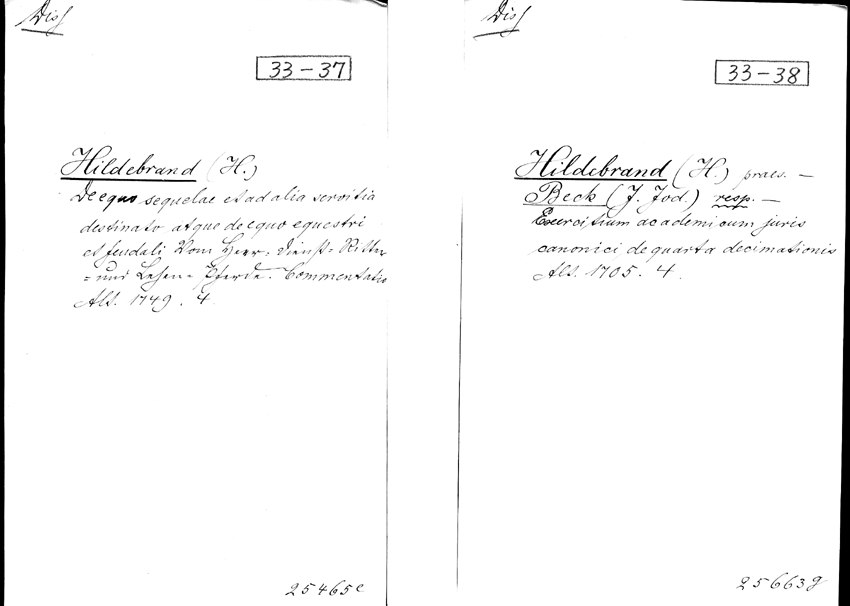 Diss
33-37
Hildebrand (H.)
De equo sequelae et ad alia servitia
destinato atque de equo equestri
et feudali Vom Heer- Dienst- Ritter
- und Lehen- Pferde. Commentatio
Alt. 1749. 4.
25465e
Diss
33-38
Hildebrand (H.) praes. —
Beck (J. Jod.) resp. —
Exercitium academicum juris
canonici de quarta decimationis
Alt. 1705. 4.
25663g